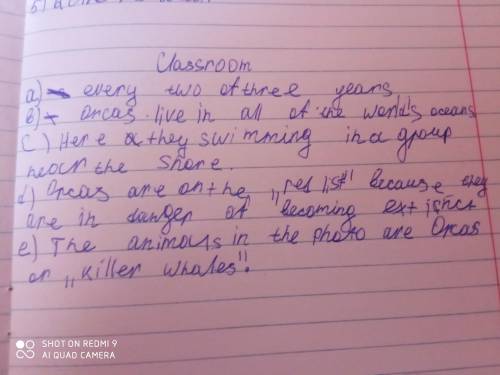 Classroom
a) every two of three years
b) Orcas live in all of the world's oceans
c) Here a they swimming in a group
near the shore.
d) Orcas are on the „red list" because they
are in danger of becoming extinct
e) The animals in the photo are Orcas
or „Killer whales".
SHOT ON REDMI 9
AI QUAD CAMERA